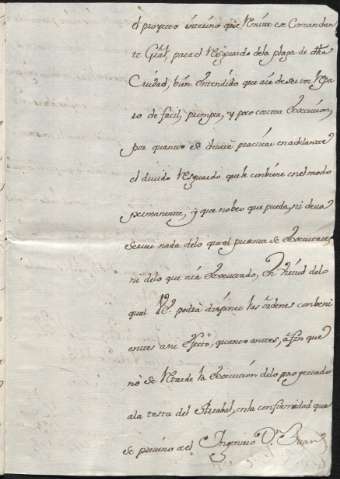 el proyecto interino que remite ese Comandan-
te Gral, para el resguardo de la plaza de esta
Ciudad, bien entendido que ha de ser con repa-
ro de facil, prompta, y poco costosa execucion,
por quanto se deverá practicar en adelante
el devido resguardo que le combiene en el modo
permanente, y que no veo que pueda, ni deva
servir nada de lo que al presente se executare,
ni de lo que está executado, en virtud de lo
qual V.E. podrá disponer las ordenes combeni-
entes a ese quanto antes, a fin que
no se retarde la execucion de lo proyectado
a la testa del Arrabal, en la conformidad que
se previno a el Ingeniero Dn. Juan